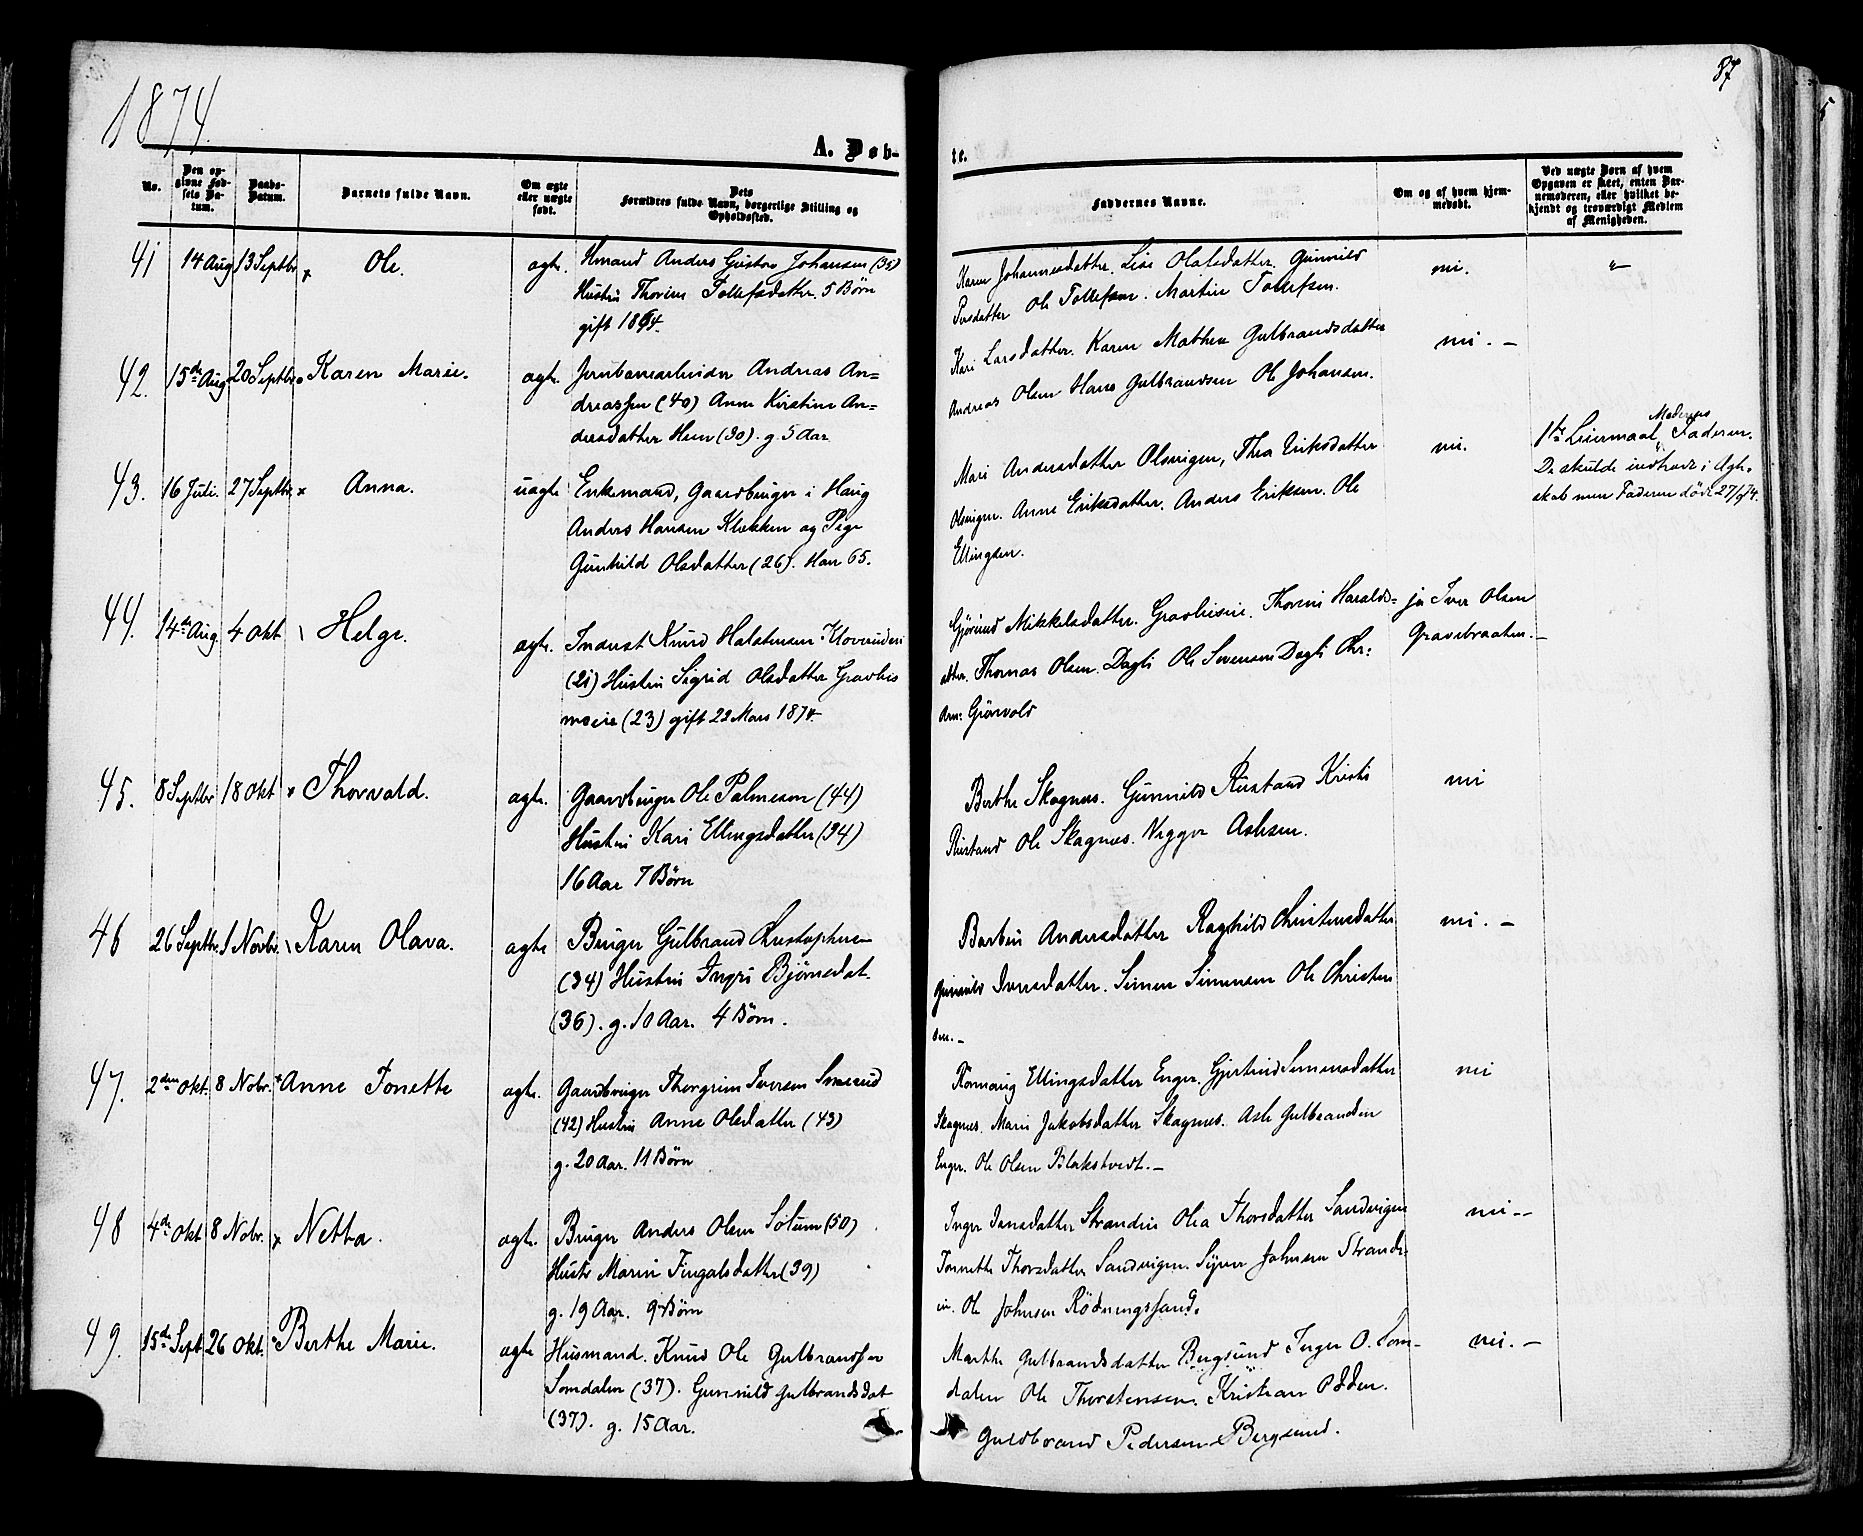 87
1874.
A. Døb-
te.
No.
Den op-
givne Fød-
sels Da-
tum.
Daabs-
Datum.
Barnets fulde Navn.
Om ægte
eller uægte
født.
Dets
Forældres fulde Navn, borgerlige Stilling og
Opholdssted.
Faddernes Navne.
Om og af hvem hjem-
medøbt.
Ved uægte Børn af hvem
Opgaven er skeet, enten Bar-
nemoderen, eller hvilket be-
kjendt og troværdigt Medlem
af Menigheden.
41 14 Aug 13 Septbr x Ole. ægte. Hmand Anders Gustav Johansen (35)
Hustru Thorine Tollefsdatter. 5 Børn
gift 1864.
Karen Johannesdatter. Lise Olalsdatter. Gunnild
Persdatter Ole Tollefsen. Martin Tollefsen.
ni. "
42. 15de Aug 20 Septbr Karen Marie. ægte. Jernbanearbeider Andreas An=
dreassen (40) Anne Kirstine An=
dersdatter Hem (30). g. 5 Aar
Kari Larsdatter. Karen Mathea Gulbrandsdatter
Andreas Olsen Hans Gulbrandsen Ole Johansen.
ni. –
43. 16 Juli. 27 Septbr x Anna. uægte Enkemand, Gaardbruger i Haug
Anders Hansen Klækken og Pige
Gunhild Olsdatter (26). Han 65.
Mari Andersdatter Olsvigen, Thea Eriksdatter
Olsvigen. Anne Eriksdatter. Anders Eriksen. Ole
Ellingsen.
ni.
1ste Leiermaal Moderens, Faderen.
De skulde indtræde i Ægte-
skab men Faderen døde 27/9 74.
44. 14de Aug. 4 Okt \ Helge. ægte. Inderst Knud Halstensen Kloverudei
(21) Hustru Sigrid Olsdatter Gravlis
moeie (23) gift 22 Mars 1874
Gjörund Mikkelsdatter. Gravlieseie. Thorini Haralds=
datter. Thomas Olsen. Dagli Ole Svensen Dagli Chr:
Arn: Grönvold
ja Iver Olsen
Gravebraaten. –
45. 8 Septbr 18 Okt x Thorvald. ægte. Gaardbruger Ole Palmesen (44)
Hustru Kari Ellingsdatter (34)
16 Aar 7 Børn
Berthe Skagnæs. Gunnild Rustand Kirsti
Rustand Ole Skagnæs. Vegger Aslesen.
ni
46 26 Septbr. 1 Novbr. \ Karen Olava. ægte Bruger Gulbrand Christophersen
(34) Hustru Ingri Björnsdat.
(36). g. 10 Aar. 4 Børn.
Barbru Andersdatter Raghild Christensdatter
Gunnild Iversdatter. Simen Simensen Ole Christen
sen. –
ni. –
47. 2den Okt. 8 Nobr. Anne Tonette ægte. Gaardbruger Thorgrim Iversen Smerud
(42) Hustru Anne Olsdatter (43)
g. 20 Aar. 11 Børn
Ellingsdatter Enger. Gjertrud Simensdatter
Skagnæs. Mari Jakobsdatter Skagnæs. Asle Gulbrandsen
Enger. Ole Olsen Blakstvedt. –
ni
48 4de Okt 8 Nobr. x Netta. ægte. Bruger Anders Olsen Solum (50)
Hustr Maren Fingalsdatter (39)
g. 19 Aar. 9 Børn
Inger Jensdatter Strandin Olea Thorsdatter Sandvigen
Jonnette Thorsdatter Sandvigen. Syver Johnsen Strand-
in. Ole Johnsen Rödningssand.
ni. –
49. 15de Sept 26 Okt. Berthe Marie. ægte Husmand. Knud Ole Gulbrandsen
Somdalen (37). Gunnild Gulbrandsdat
(37). g. 15 Aar.
Marthe Gulbrandsdatter Bergsund Inger O. Som-
dalen Ole Thorstensen. Kristian Pedersen.
Guldbrand Pedersen Bergsund.
ni. –